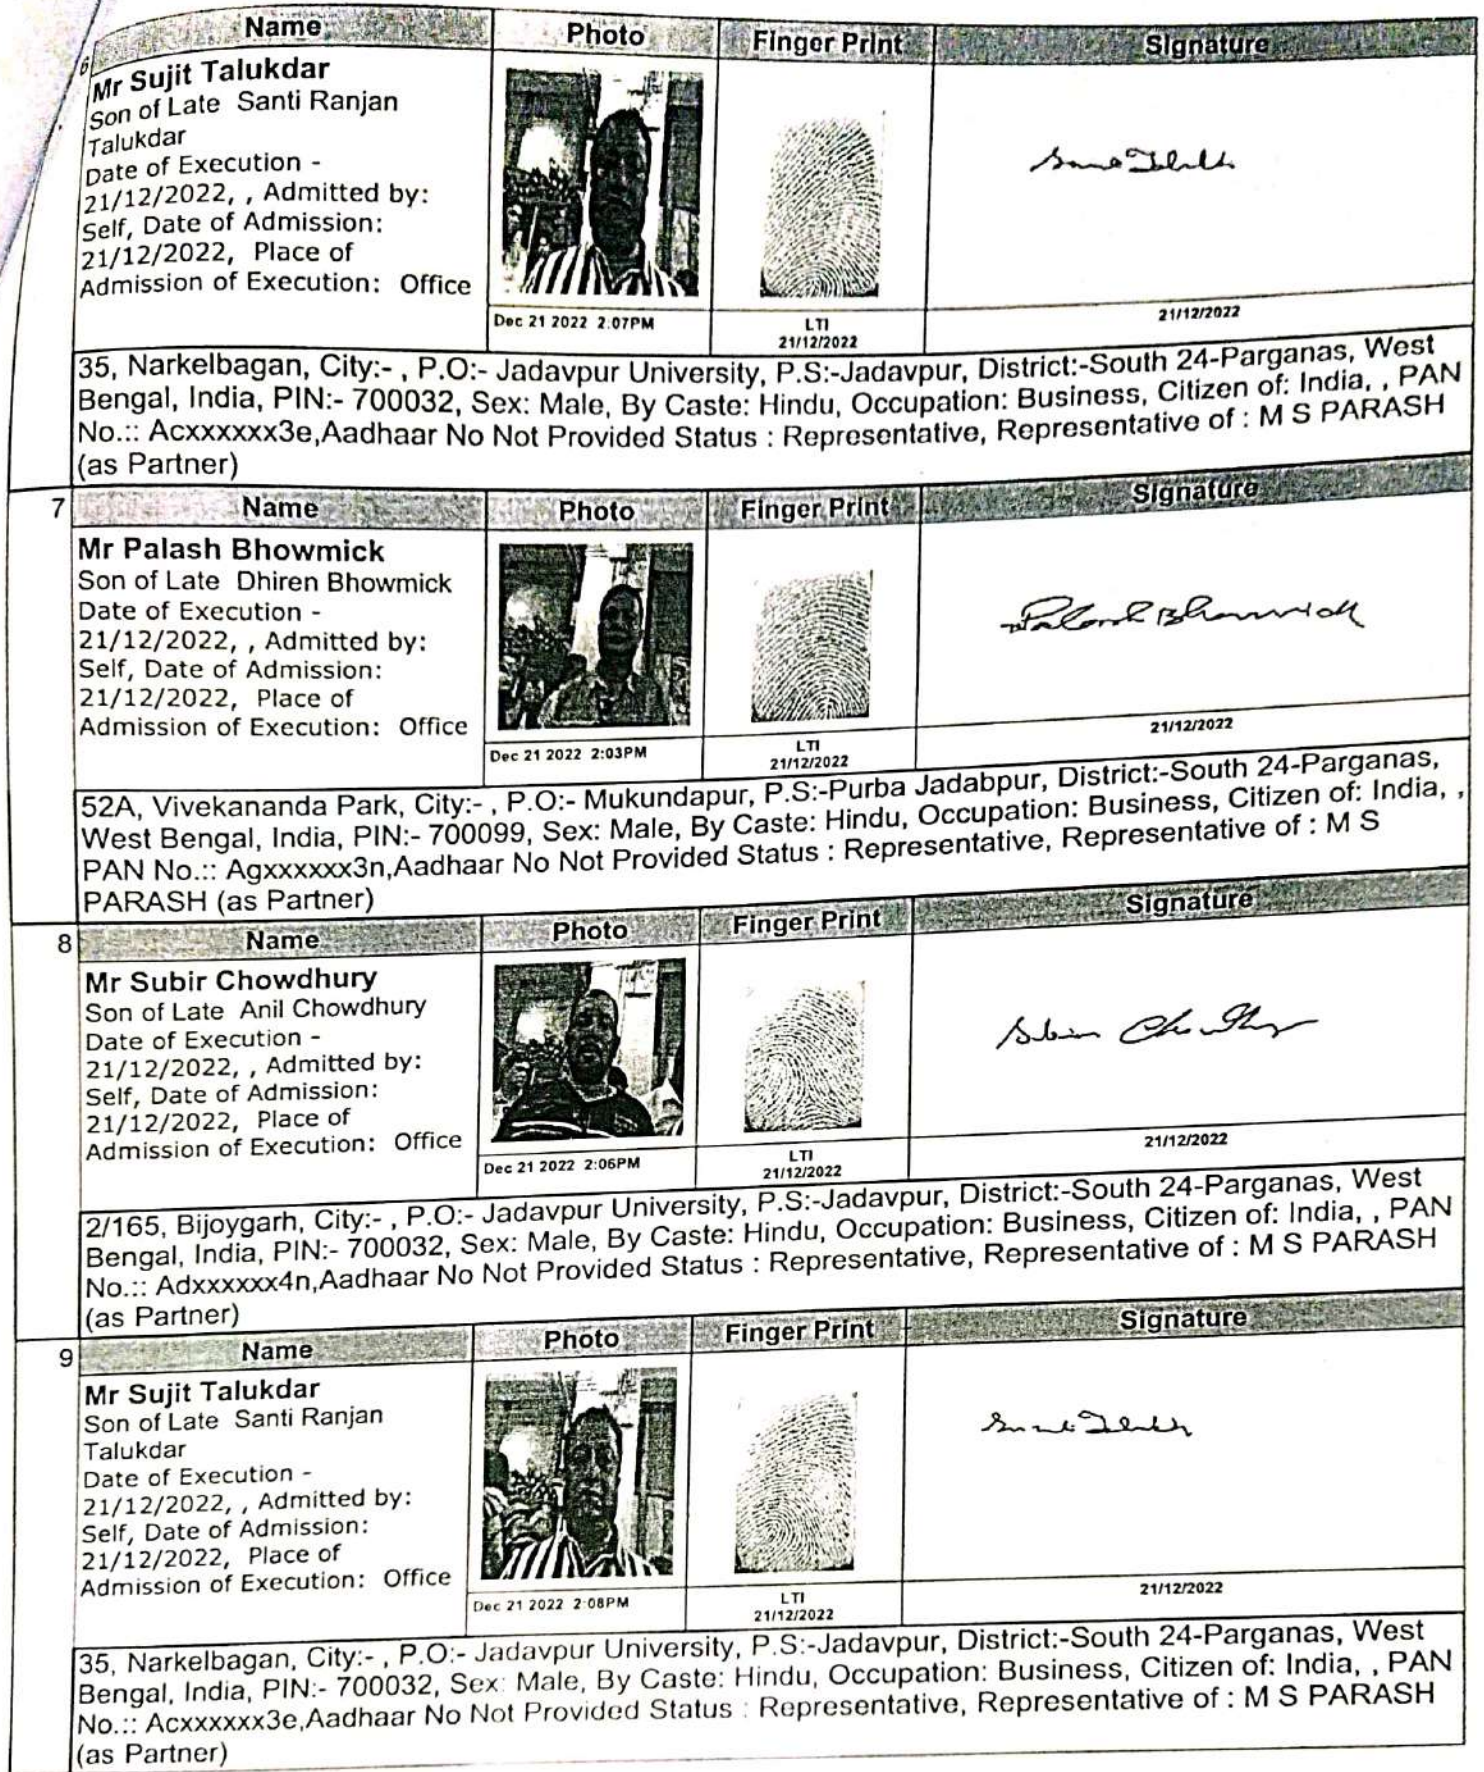 Name Photo Finger Print Signature
6
Mr Sujit Talukdar
Son of Late Santi Ranjan
Talukdar
Date of Execution -
21/12/2022, , Admitted by:
Self, Date of Admission:
21/12/2022, Place of
Admission of Execution: Office
Dec 21 2022 2:07PM
LTI
21/12/2022
21/12/2022
35, Narkelbagan, City:- , P.O:- Jadavpur University, P.S:-Jadavpur, District:-South 24-Parganas, West
Bengal, India, PIN:- 700032, Sex: Male, By Caste: Hindu, Occupation: Business, Citizen of: India, , PAN
No.:: Acxxxxxx3e,Aadhaar No Not Provided Status : Representative, Representative of : M S PARASH
(as Partner)
7 Name Photo Finger Print Signature
Mr Palash Bhowmick
Son of Late Dhiren Bhowmick
Date of Execution -
21/12/2022, , Admitted by:
Self, Date of Admission:
21/12/2022, Place of
Admission of Execution: Office
Dec 21 2022 2:03PM
LTI
21/12/2022
Palash Bhowmick
21/12/2022
52A, Vivekananda Park, City:- , P.O:- Mukundapur, P.S:-Purba Jadabpur, District:-South 24-Parganas,
West Bengal, India, PIN:- 700099, Sex: Male, By Caste: Hindu, Occupation: Business, Citizen of: India, ,
PAN No.:: Agxxxxxx3n,Aadhaar No Not Provided Status : Representative, Representative of : M S
PARASH (as Partner)
8 Name Photo Finger Print Signature
Mr Subir Chowdhury
Son of Late Anil Chowdhury
Date of Execution -
21/12/2022, , Admitted by:
Self, Date of Admission:
21/12/2022, Place of
Admission of Execution: Office
Dec 21 2022 2:06PM
LTI
21/12/2022
21/12/2022
2/165, Bijoygarh, City:- , P.O:- Jadavpur University, P.S:-Jadavpur, District:-South 24-Parganas, West
Bengal, India, PIN:- 700032, Sex: Male, By Caste: Hindu, Occupation: Business, Citizen of: India, , PAN
No.:: Adxxxxxx4n,Aadhaar No Not Provided Status : Representative, Representative of : M S PARASH
(as Partner)
9 Name Photo Finger Print Signature
Mr Sujit Talukdar
Son of Late Santi Ranjan
Talukdar
Date of Execution -
21/12/2022, , Admitted by:
Self, Date of Admission:
21/12/2022, Place of
Admission of Execution: Office
Dec 21 2022 2:08PM
LTI
21/12/2022
21/12/2022
35, Narkelbagan, City:- , P.O:- Jadavpur University, P.S:-Jadavpur, District:-South 24-Parganas, West
Bengal, India, PIN:- 700032, Sex: Male, By Caste: Hindu, Occupation: Business, Citizen of: India, , PAN
No.:: Acxxxxxx3e,Aadhaar No Not Provided Status : Representative, Representative of : M S PARASH
(as Partner)